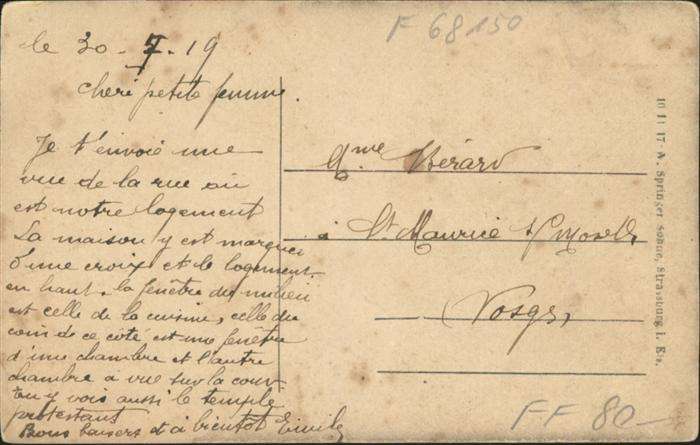 F 68150
le 30-7-19
cheri petite femme
Je t'envoie une
vue de la rue ou
est notre logement
La maison y est marquee
d'une croix et le logement
en haut. la fenêtre du milieu
est celle de la cuisine, celle du
coin de ce côté est une fenêtre
d'une chambre et l'autre
chambre a vue sur la cour
tu y vois aussi le temple
protestant
Bons baisers et à bientôt Emile
Mme Bérard
à St Maurice s/Moselle
Vosges
10 11 17 - A. Springer Söhne, Strassburg i. Els.
FF 80-